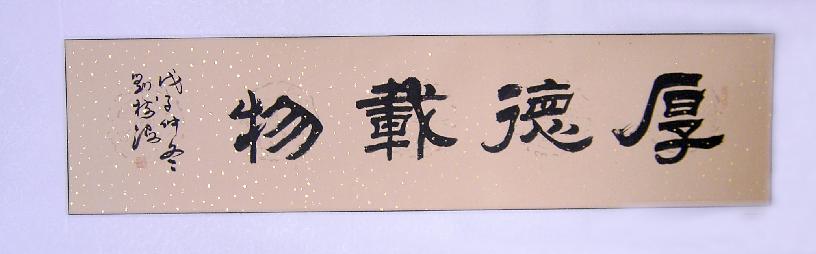 厚德載物
戊子仲冬
劉樹海